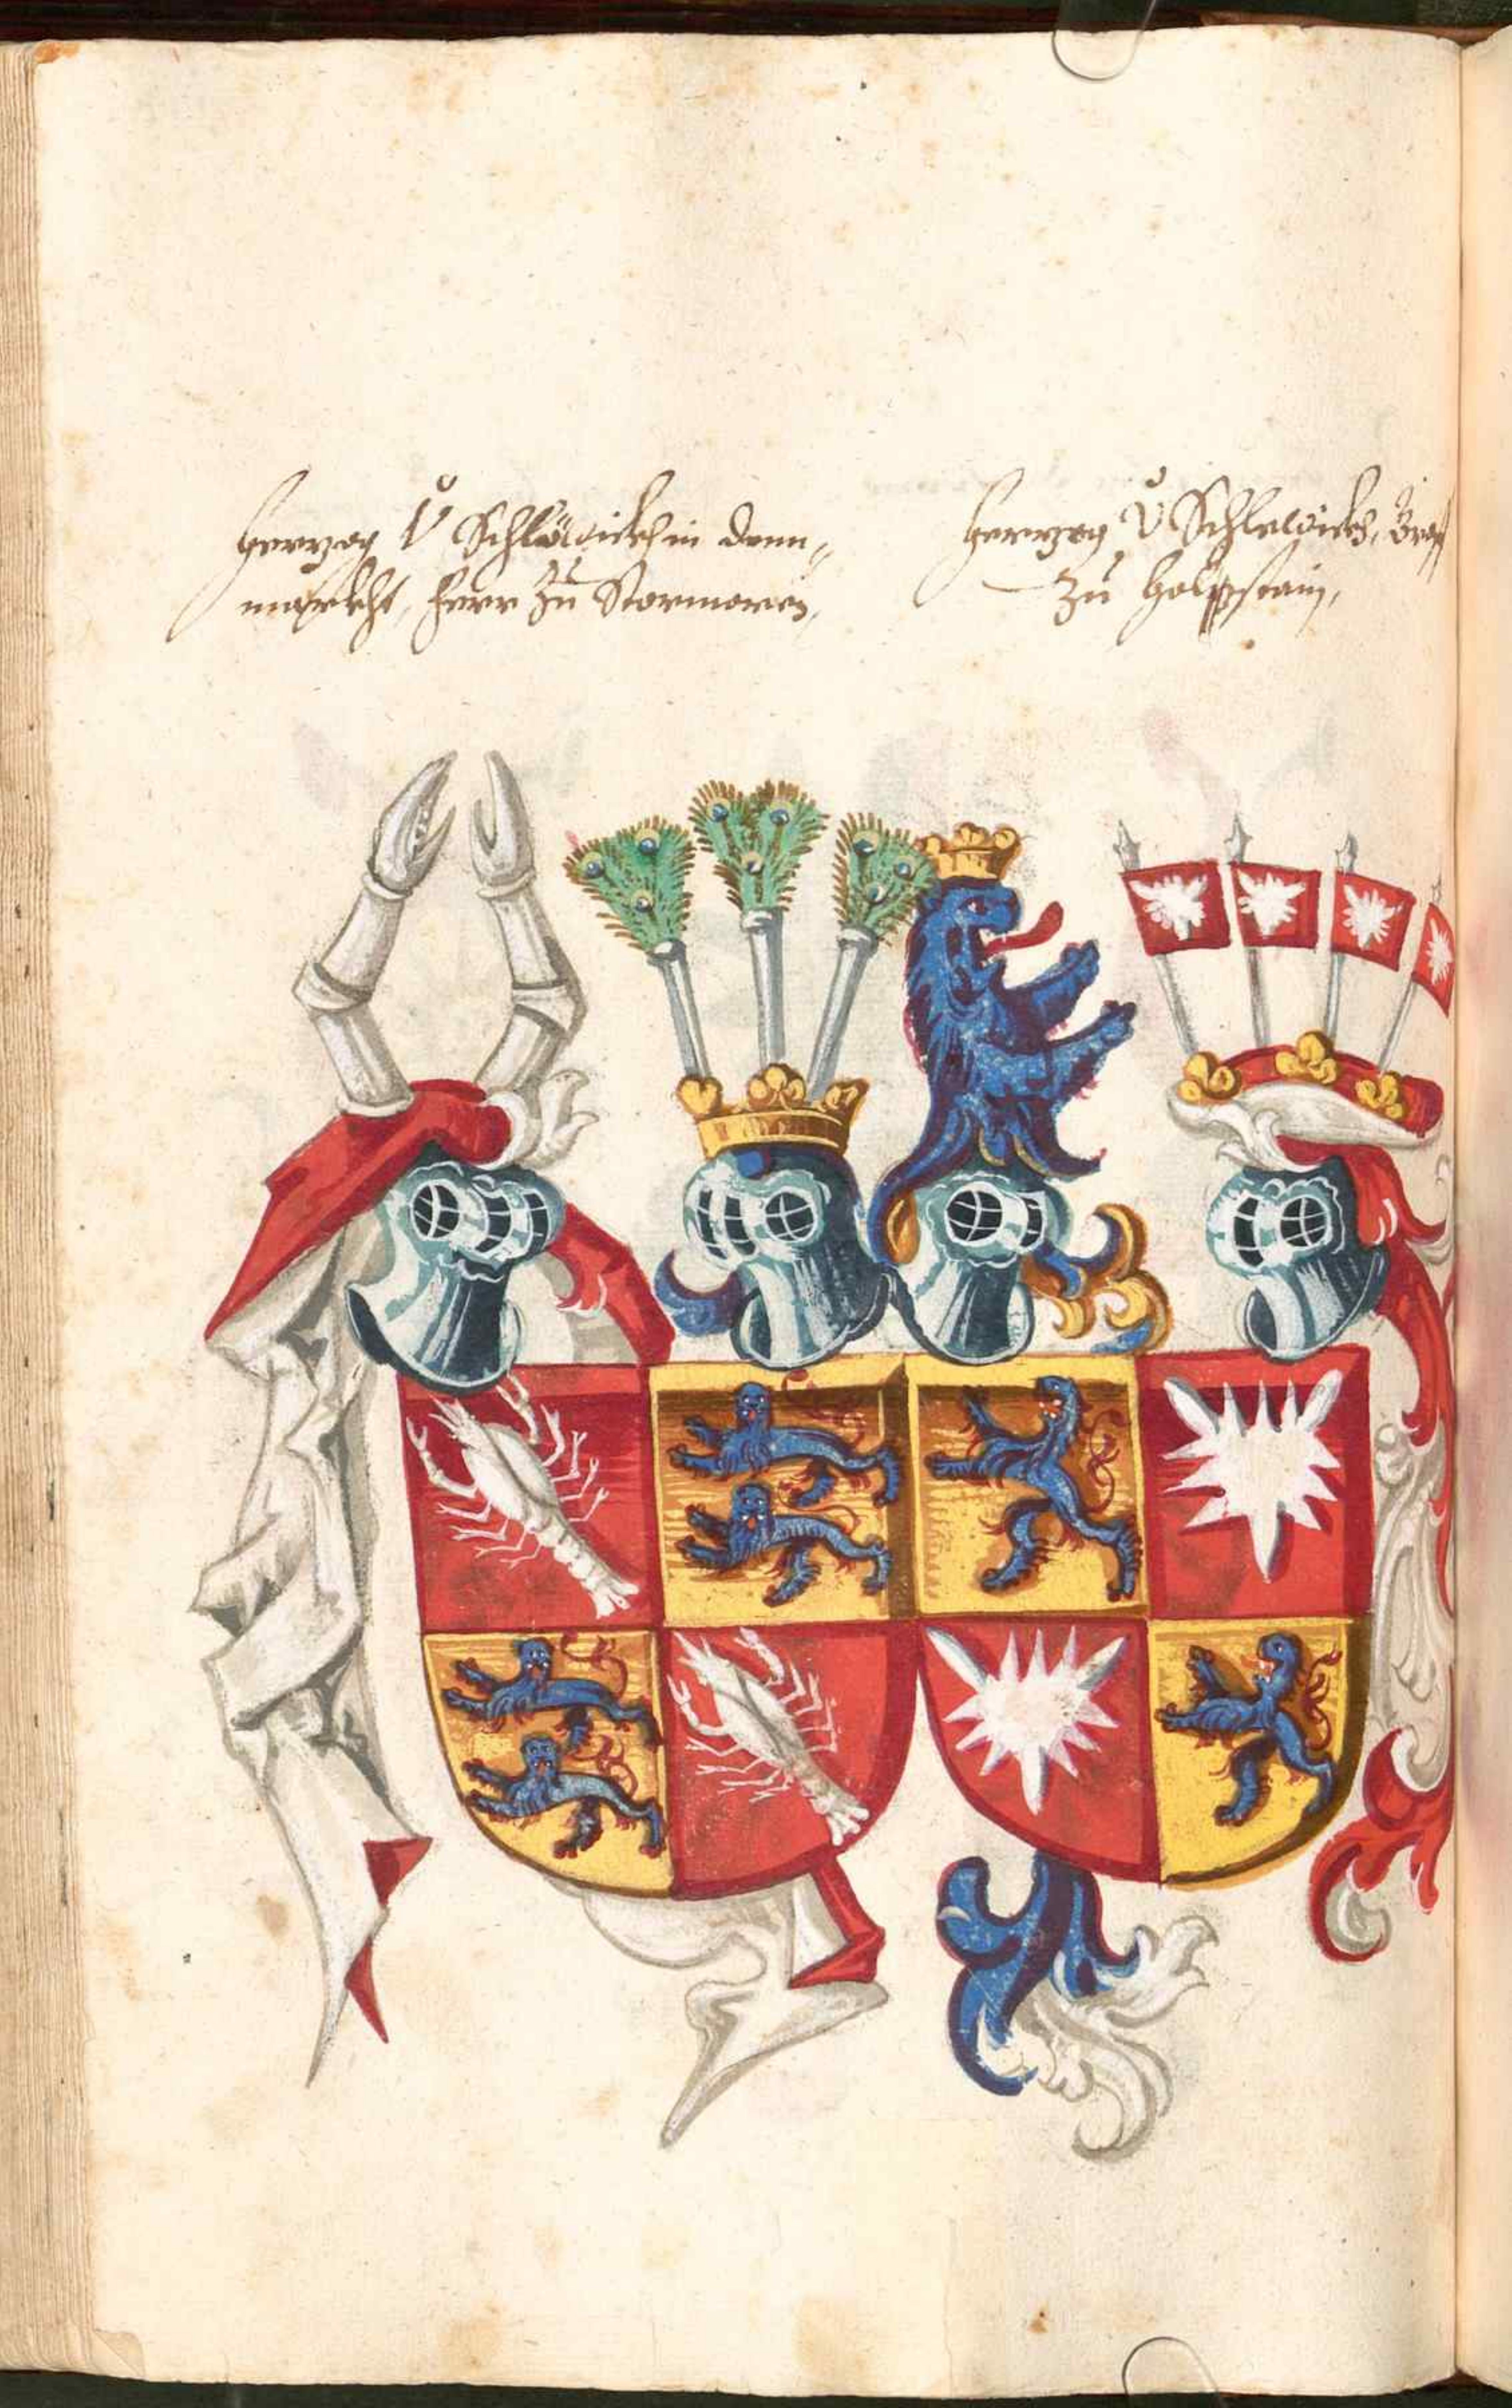 Hertzog V Schlöswickh in Denn-
marckht, Herr Zu Stormaren,
Hertzog V Schleswickh, Graf
Zu Holstain,